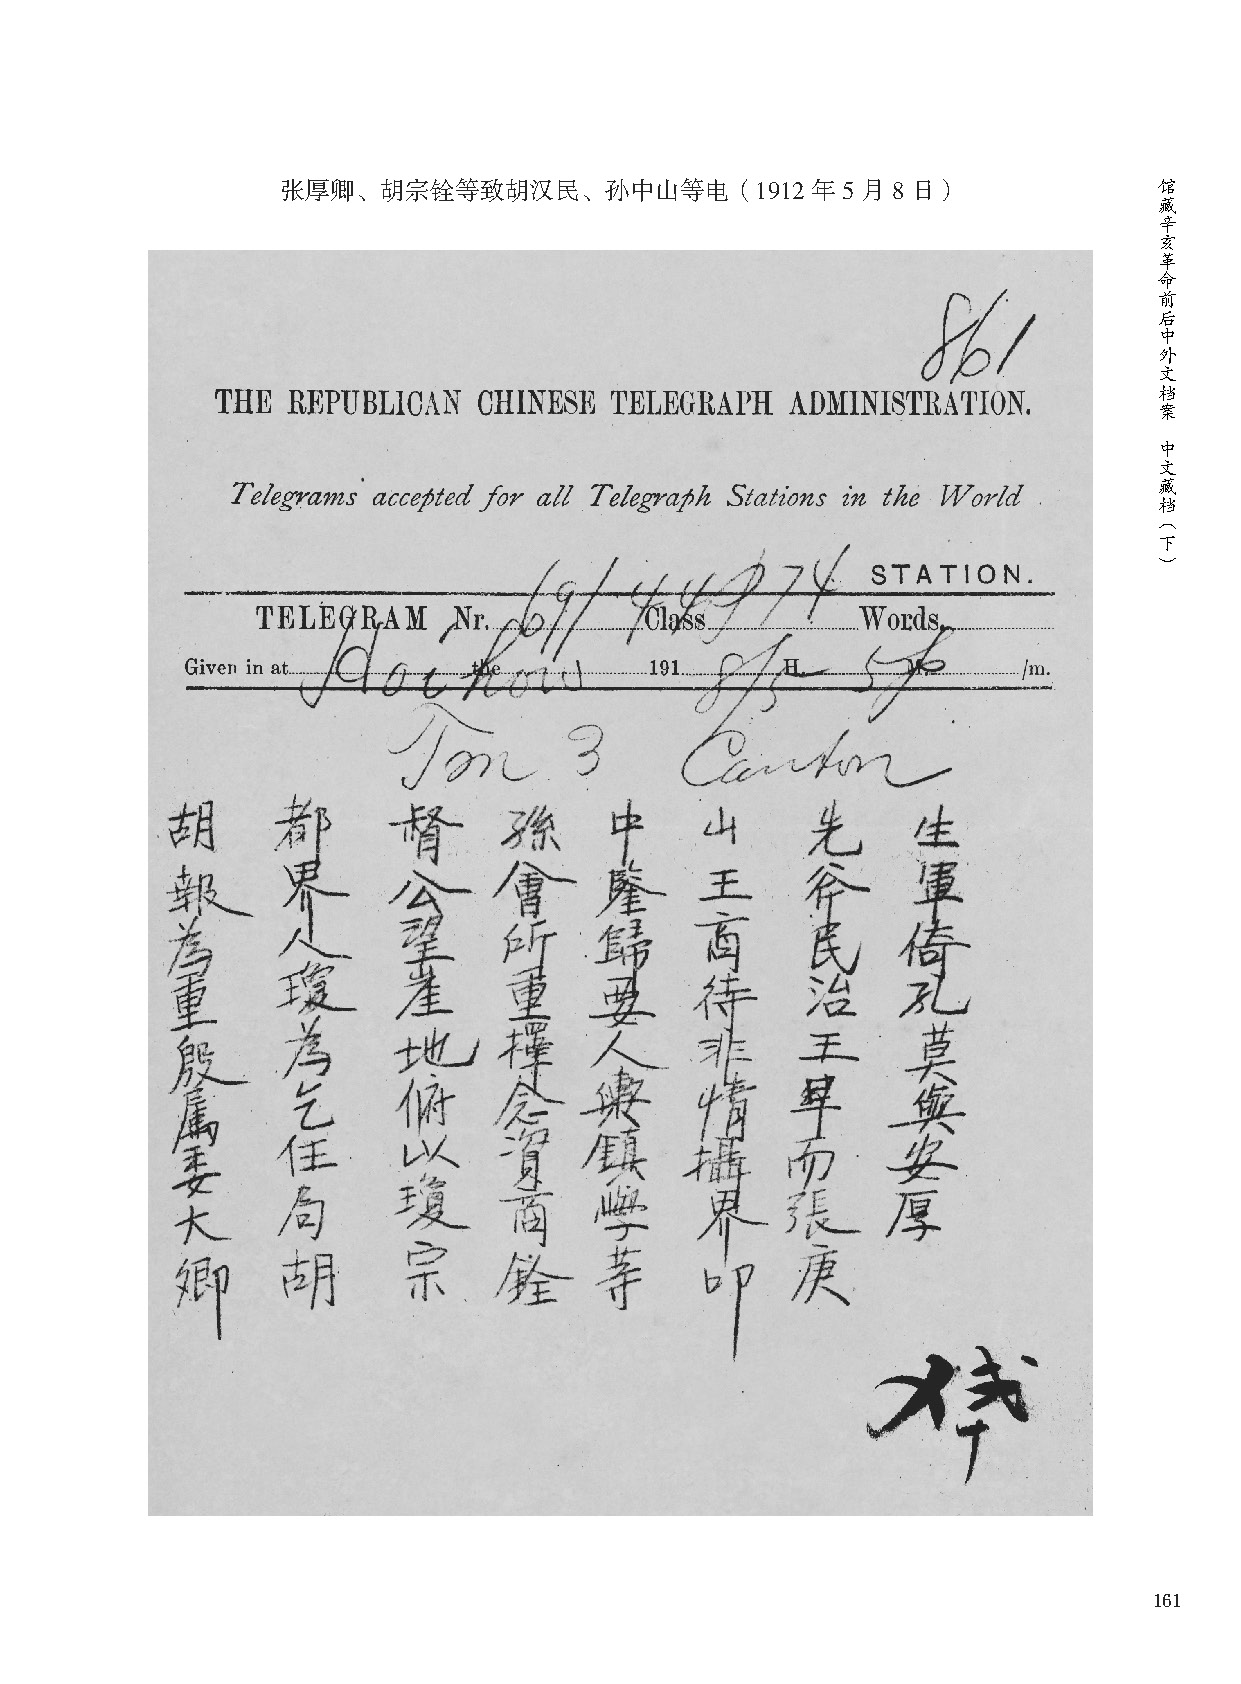 张厚卿、胡宗铨等致胡汉民、孙中山等电（1912 年 5 月 8 日）
861
THE REPUBLICAN CHINESE TELEGRAPH ADMINISTRATION.
Telegrams accepted for all Telegraph Stations in the World
STATION.
TELEGRAM Nr. 69/ Class Words
Given in at Hoihow the 191 8/5 H. M. /m.
3 Canton
胡都督孫中山先生
報界公會鑒王斧軍
為人望所歸商民倚
重瓊崖重要待治孔
殷為地擇人非王莫
屬乞俯念輿情畀與
委任以資鎮攝而安
大局瓊商學界張厚
卿胡宗銓等叩庚
馆藏辛亥革命前后中外文档案 中文藏档（下）
161